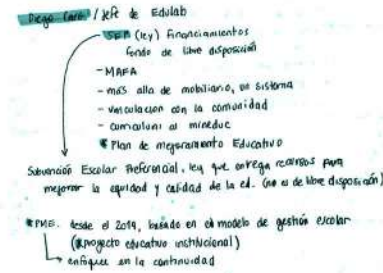 Diego Caro / Jefe de Edulab
SEP (ley) Financiamientos
fondo de libre disposición
- MAFA
- más alla de mobiliario, un sistema
- vinculacion con la comunidad
- curriculum al mineduc
* Plan de mejoramiento Educativo
Subvención Escolar Preferencial, ley que entrega recursos para
mejorar la equidad y calidad de la ed. (no es de libre disposición)
*PME. desde el 2014, basado en el modelo de gestión escolar
(*proyecto educativo institucional)
enfoque en la continuidad